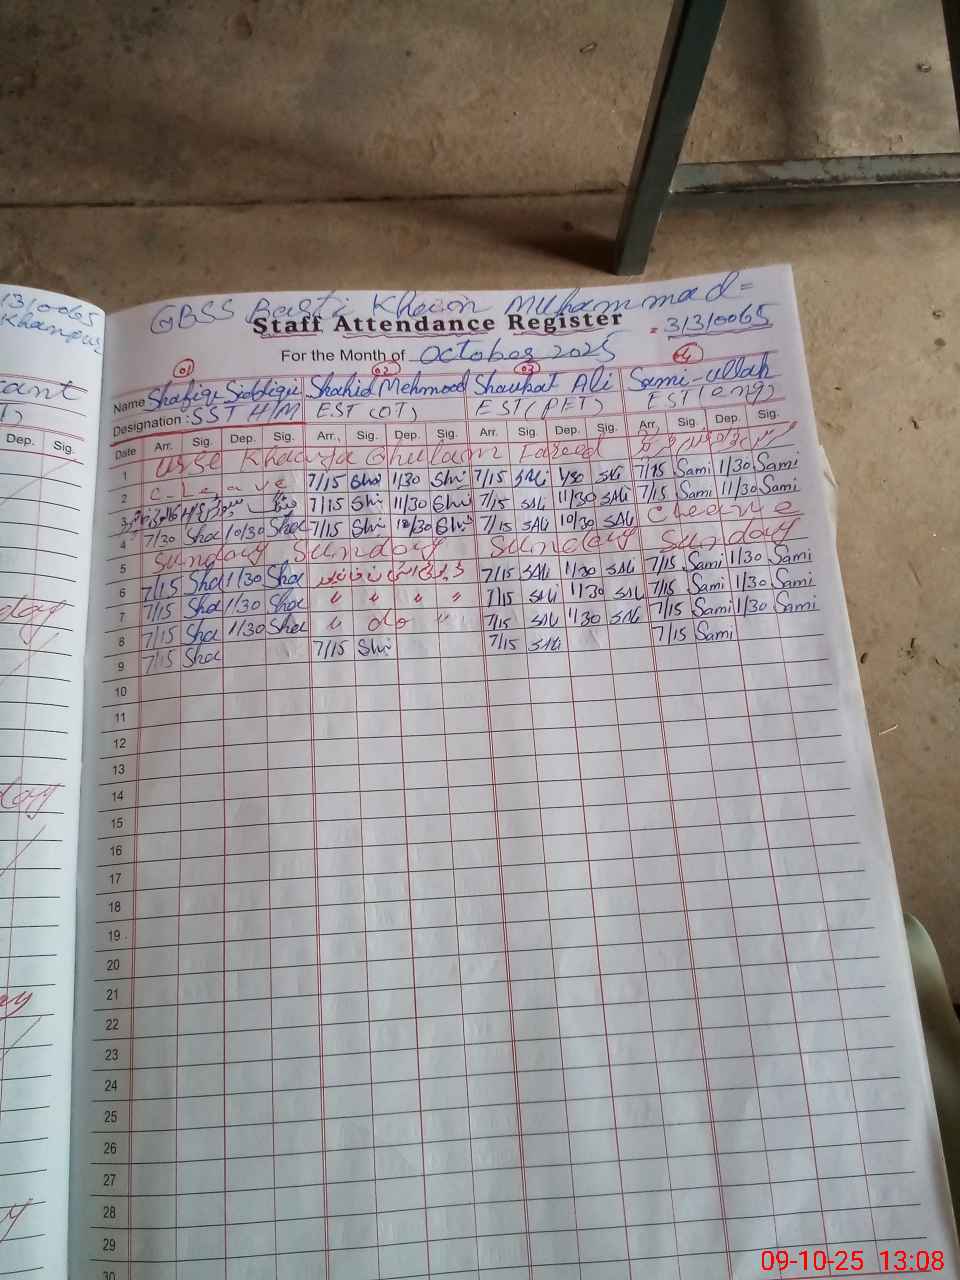 GBSS Basti Khawn Muhammad =
Staff Attendance Register = 31310065
For the Month of October 2025
01 02 03 04
Name Shafiqe Siddiqui Shahid Mehmood Shaukat Ali Sami-ullah
Designation : SST H/M EST (OT) EST (PET) EST (eng)
Date Arr. Sig. Dep. Sig. Arr. Sig. Dep. Sig. Arr. Sig. Dep. Sig. Arr. Sig. Dep. Sig.
1 Urse Khawja Ghulam Fareed
2 C-Leave 7/15 Sha 1/30 Shi 7/15 SAli 1/30 SAli 7/15 Sami 1/30 Sami
3 7/15 Shi 11/30 Shi 7/15 SAli 11/30 SAli 7/15 Sami 11/30 Sami
4 7/20 Sha 10/30 Sha 7/15 Shi 10/30 Shi 7/15 SAli 10/30 SAli C Leave
5 Sunday Sunday Sunday Sunday
6 7/15 Sha 1/30 Sha 7/15 SAli 1/30 SAli 7/15 Sami 1/30 Sami
7 7/15 Sha 1/30 Sha " " " " 7/15 SAli 1/30 SAli 7/15 Sami 1/30 Sami
8 7/15 Sha 1/30 Sha " do " 7/15 SAli 1/30 SAli 7/15 Sami 1/30 Sami
9 7/15 Sha 7/15 Shi 7/15 SAli 7/15 Sami
10
11
12
13
14
15
16
17
18
19
20
21
22
23
24
25
26
27
28
29
30
31310065
Khanpur
Dep. Sig.
09-10-25 13:08